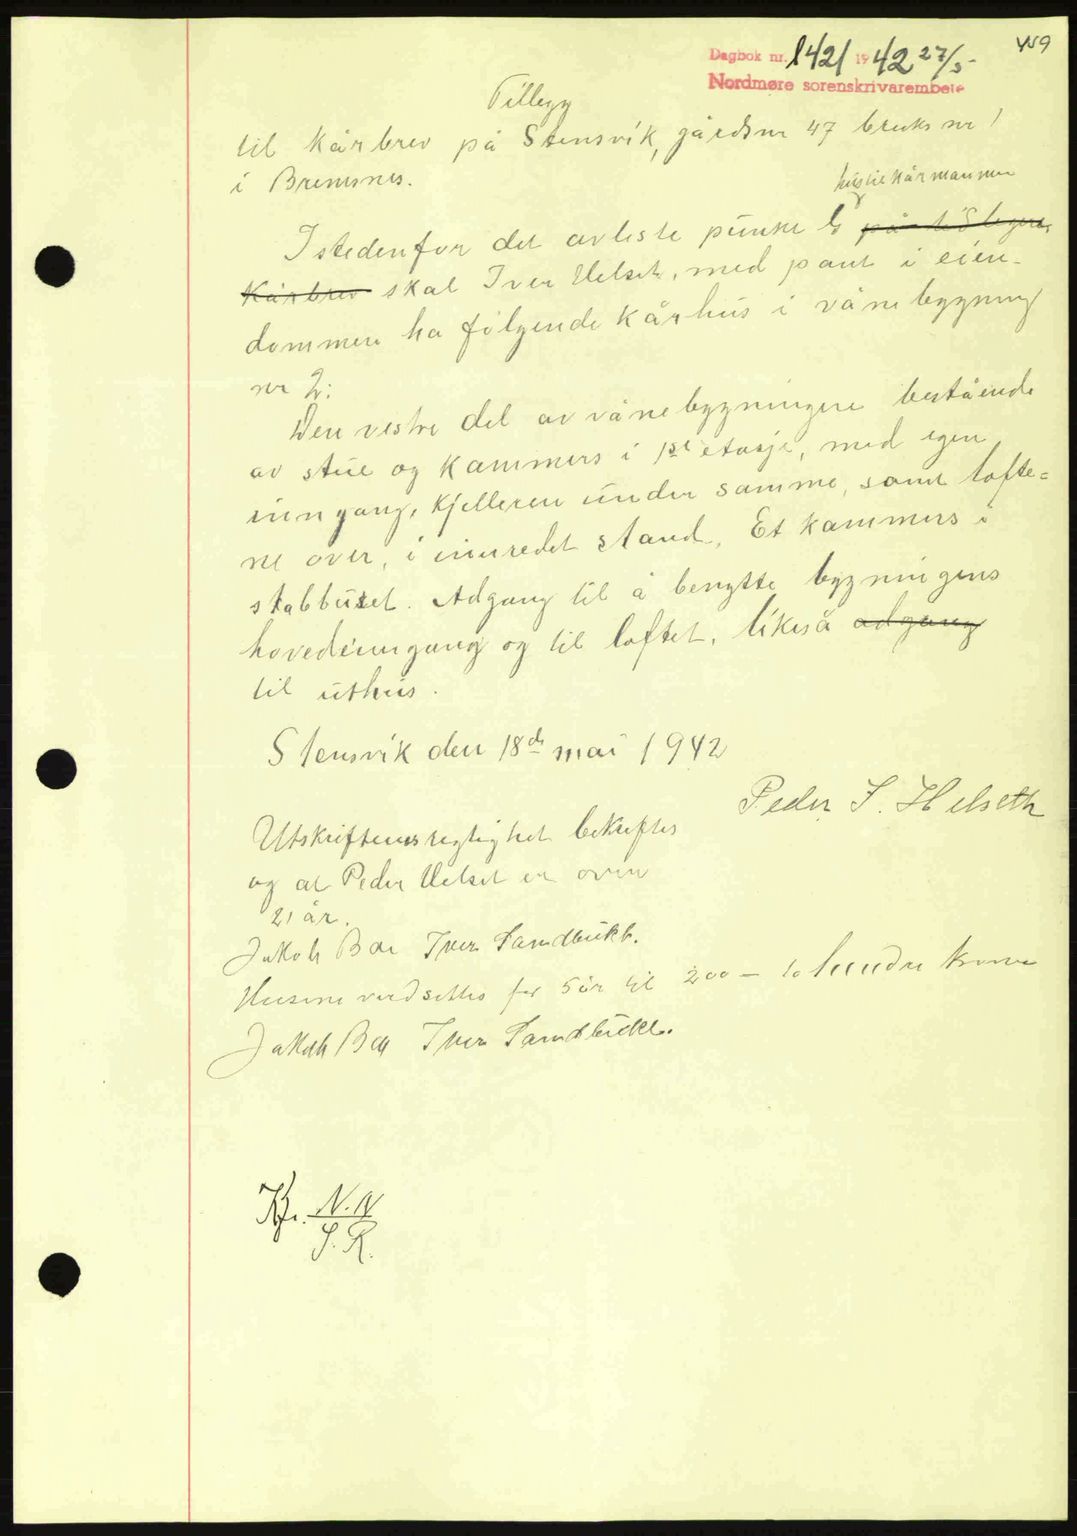 459
Dagbok nr. 1421 1942 27/5
Nordmøre sorenskrivarembete
Tillegg
til kårbrev på Stensvik, gårdsnr 47 bruks nr 1
i Bremsnes.
hus til kårmannen
Istedenfor det avleste punkt b på tidligere
kårbrev skal Iver Helset, med pant i eien-
dommen ha følgende kårhus i vånebygning
nr 2:
Den vestre del av vånebygningen bestående
av stue og kammers i 1ste etasje, med egen
inngang, kjelleren under samme, samt lofte=
ne over, i innredet stand. Et kammers i
stabburet. Adgang til å benytte bygningens
hovedinngang og til loftet, likeså adgang
til uthus.
Stensvik den 18de mai 1942
Peder I. Helseth
Utskriftens regtighet bekreftes
og at Peder Helset er over
21 år.
Jakob Bøe Iver Sandbukt.
Husene verdsettes for 5 år til 200 – to hundre kroner
Jakob Bøe Iver Sandbukt.
Kfr. N. N
S. R.